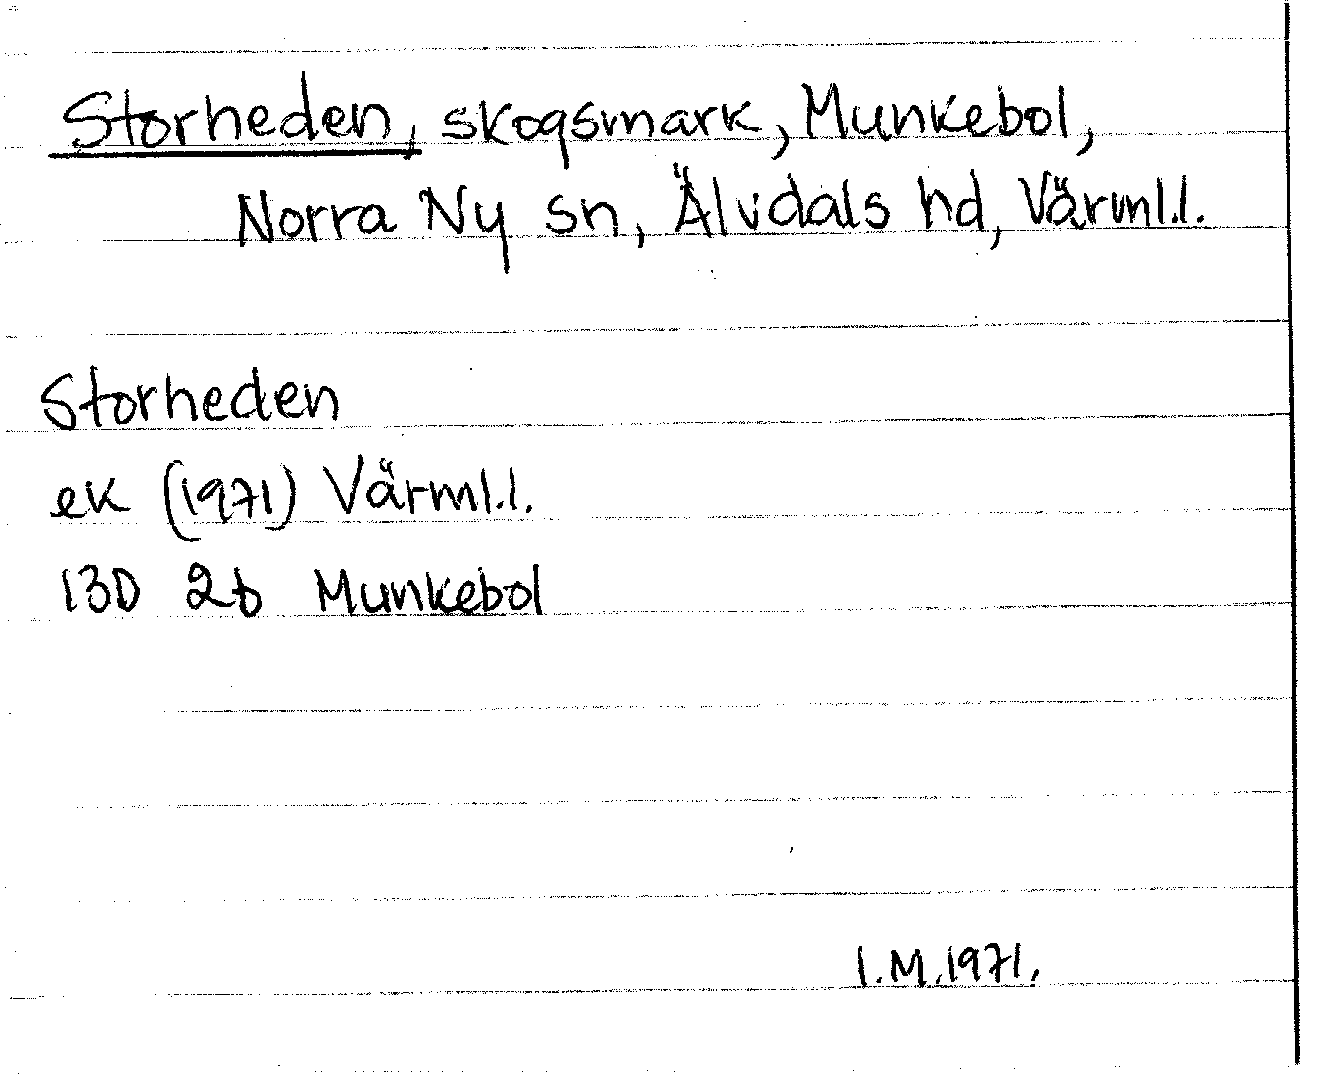 Storheden, skogsmark, Munkebol,
Norra Ny sn, Älvdals hd, Värml.l.
Storheden
ek (1971) Värml.l.
13D 2b Munkebol
I.M.1971.